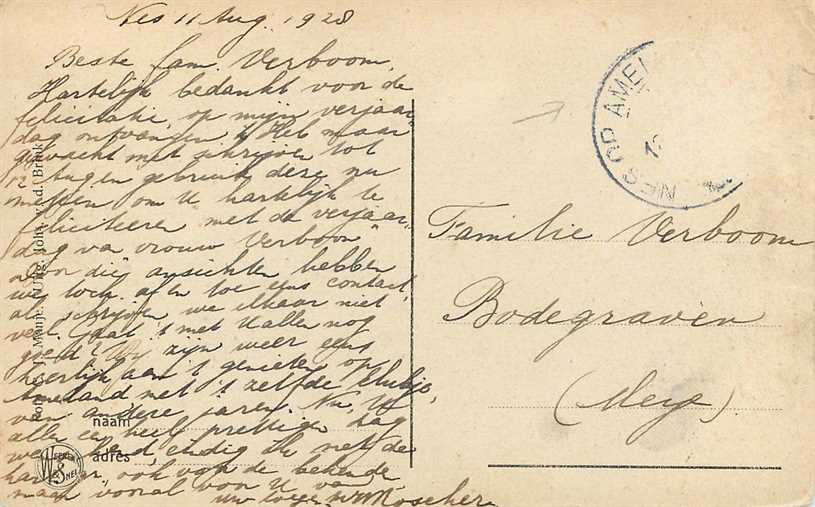 Nes 11 Aug. 1928
Beste fam. Verboom,
Hartelijk bedankt voor de
felicitatie, op mijn verjaar-
dag ontvangen. Heb maar
gewacht met schrijven tot
12 Aug en gebruik deze nu
meteen om U hartelijk te
feliciteeren met de verjaar-
dag va vrouw Verboom
door die ansichten hebben
we toch af en toe eens contact,
al schrijven we elkaar niet
veel. Gaat 't met U allen nog
goed? Wij zijn weer eens
heerlijk aan 't genieten op
Ameland met 't zelfde clubje,
van andere jaren. Nu, U
allen een heel prettigen dag
eindig ik met de
ook van de bekende
maar vooral voor U van
uw
NES OP AMEL
Familie Verboom
Bodegraven
(Meije)
naam
adres
WEENENK & SNEL